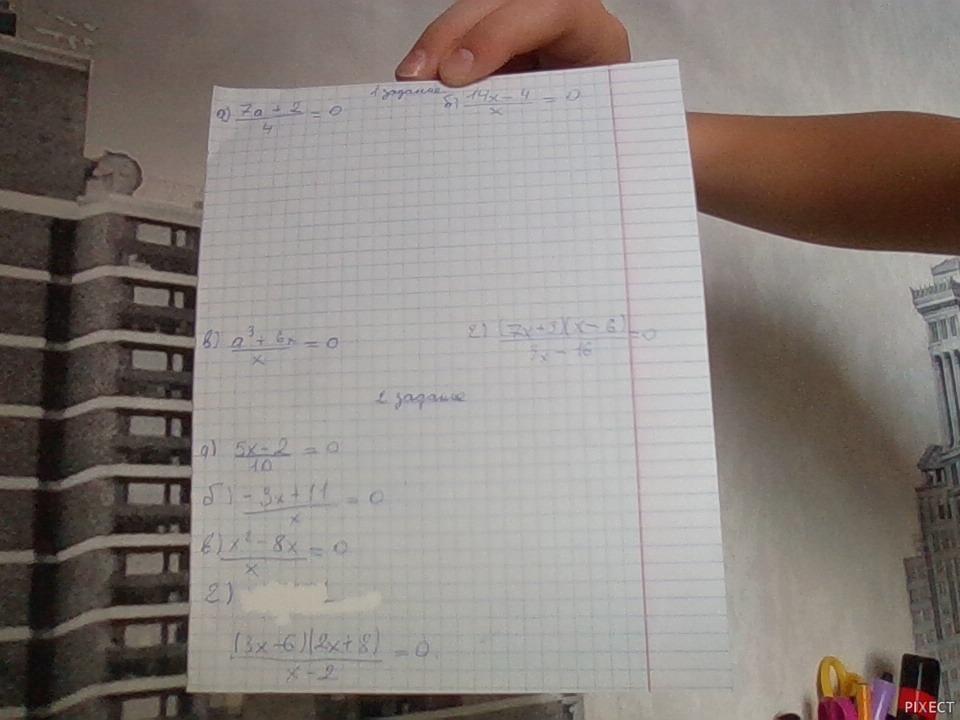 1 задание
а) 7a + 2 / 4 = 0
б) 14x - 4 / x = 0
в) a³ + 6x / x = 0
г) (7x+3)(x-6) / 7x - 16 = 0
2 задание
а) 5x - 2 / 10 = 0
б) -3x + 11 / x = 0
в) x² - 8x / x = 0
г)
(3x-6)(2x+8) / x - 2 = 0
PIXECT